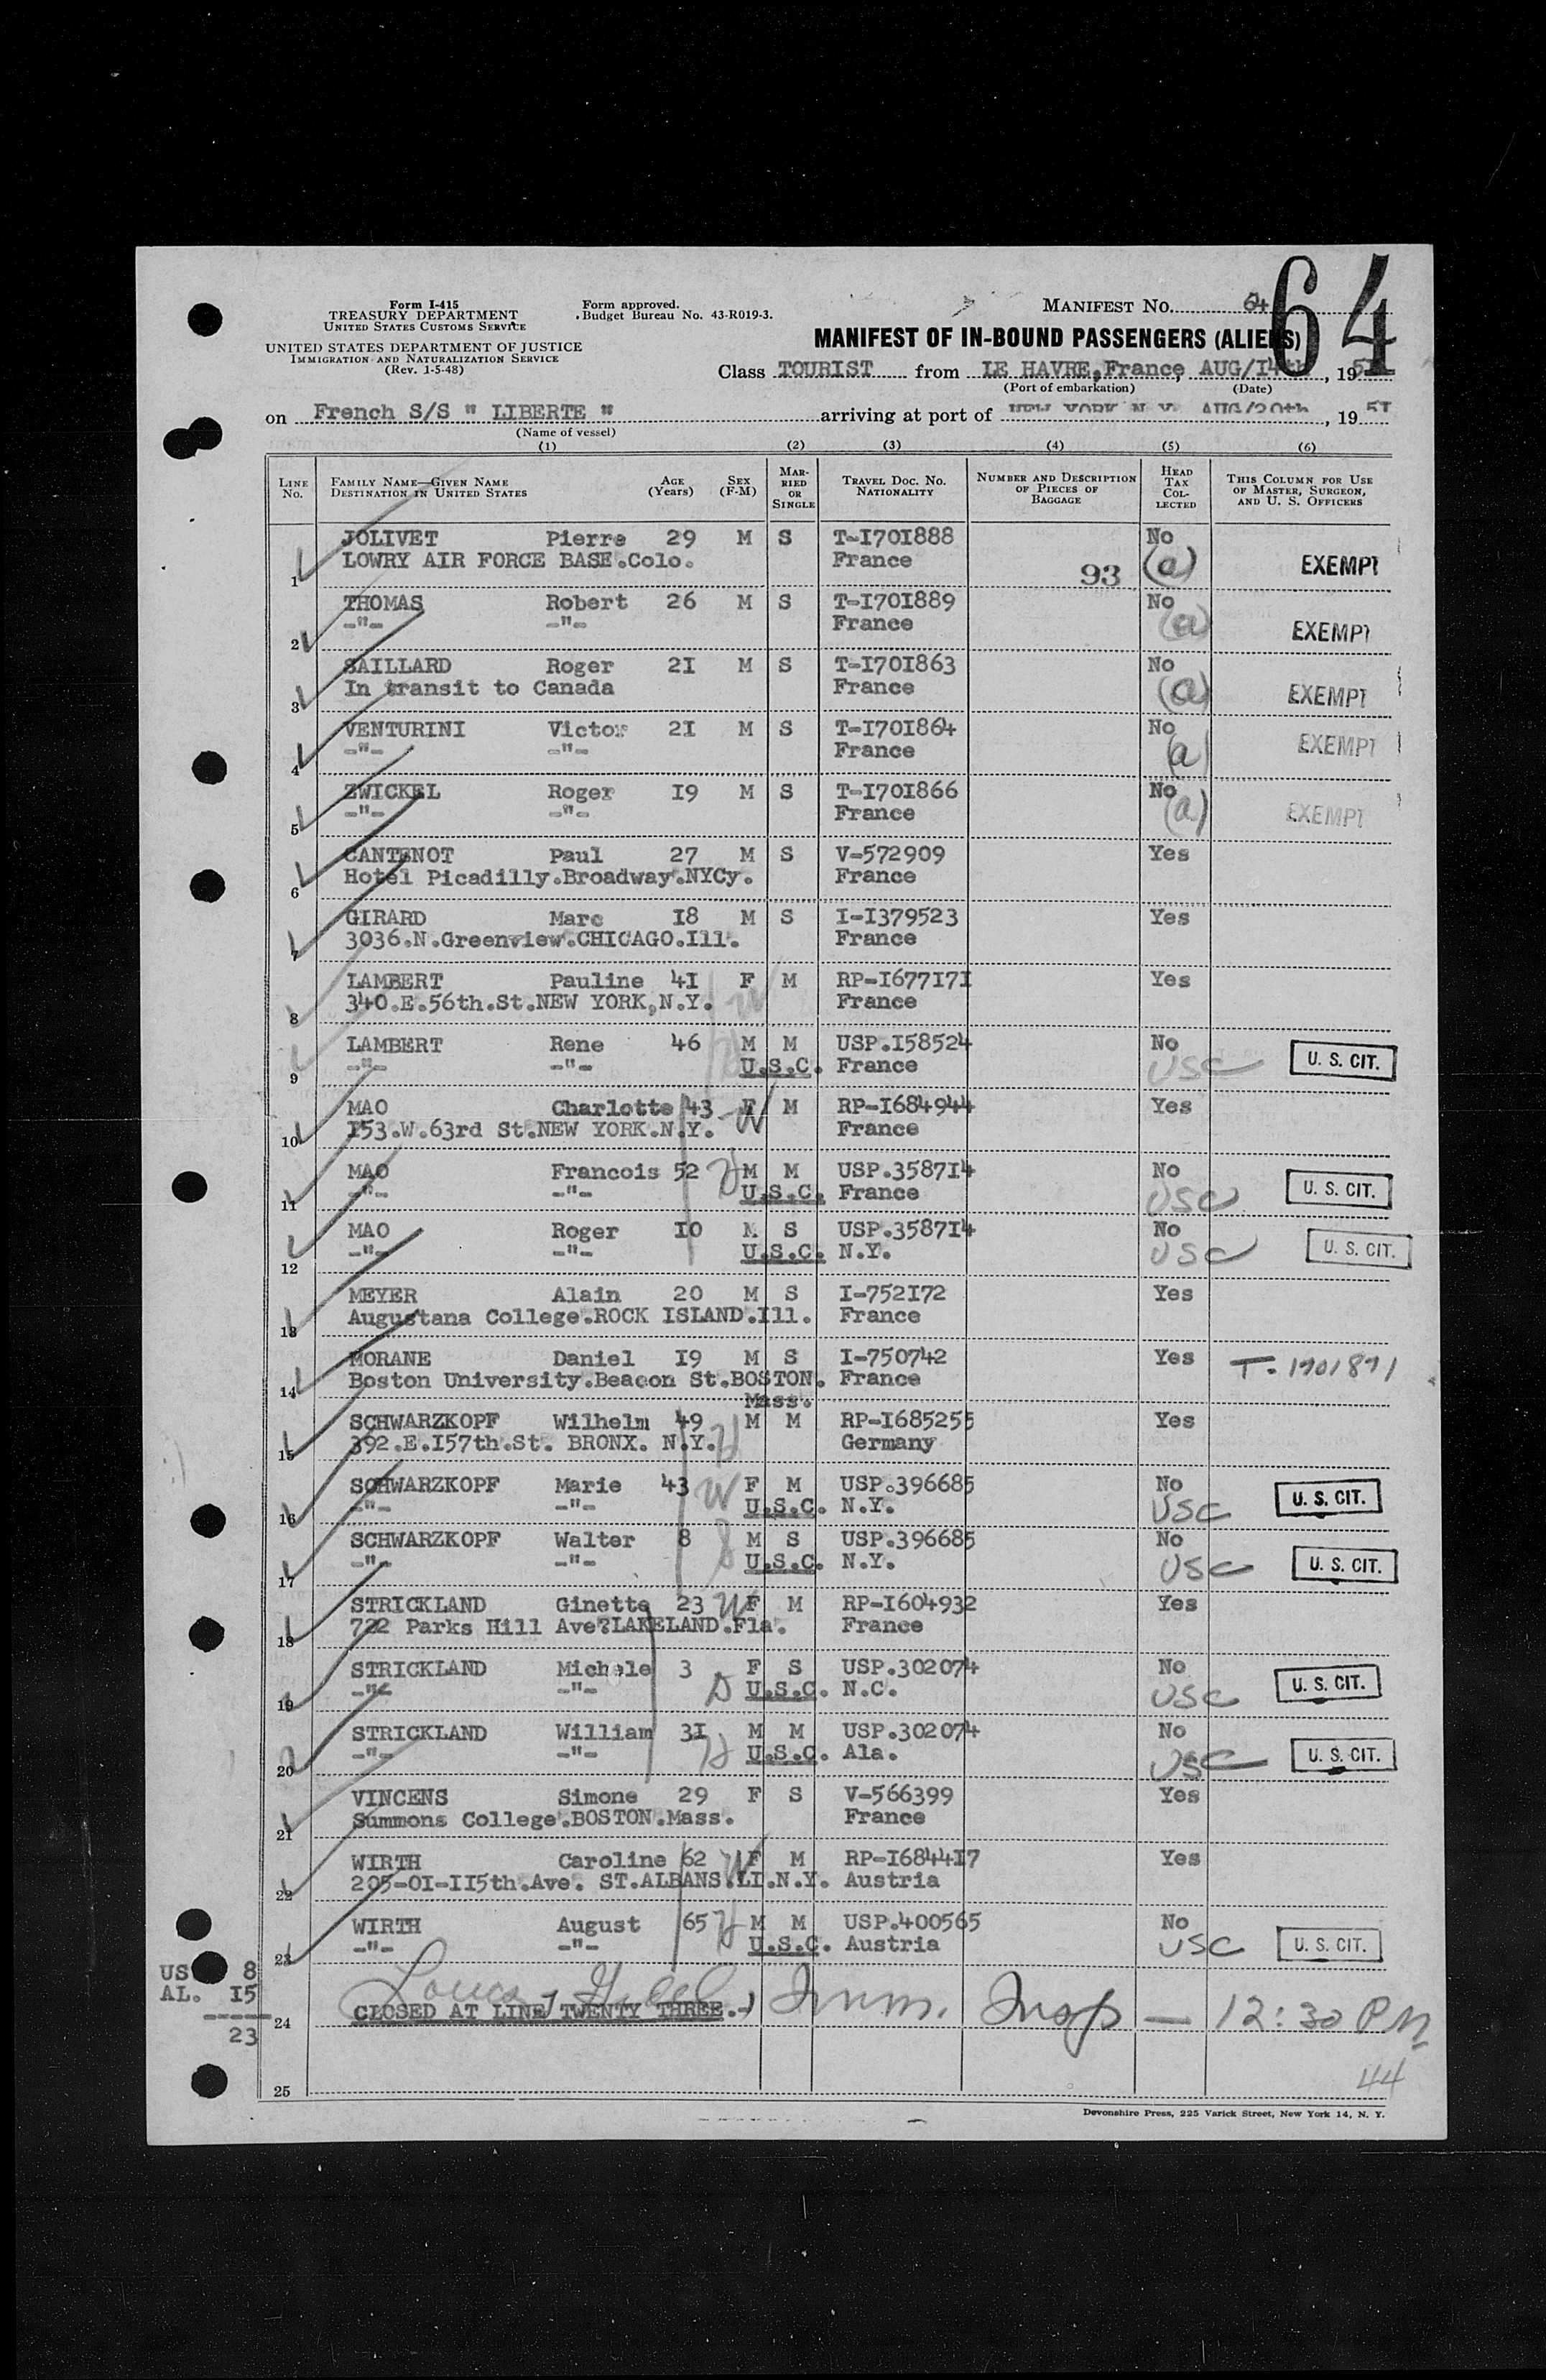 64
Form I-415
TREASURY DEPARTMENT
UNITED STATES CUSTOMS SERVICE
UNITED STATES DEPARTMENT OF JUSTICE
IMMIGRATION AND NATURALIZATION SERVICE
(Rev. 1-5-48)
Form approved.
Budget Bureau No. 43-R019-3.
MANIFEST NO. 64
MANIFEST OF IN-BOUND PASSENGERS (ALIENS)
Class TOURIST from LE HAVRE,France, AUG/I4th, 1951
(Port of embarkation) (Date)
on French S/S " LIBERTE " arriving at port of NEW YORK N Y. AUG/20th, 195I
(Name of vessel)
(1) (2) (3) (4) (5) (6)
LINE No. FAMILY NAME—GIVEN NAME DESTINATION IN UNITED STATES AGE (Years) SEX (F-M) MARRIED OR SINGLE TRAVEL DOC. NO. NATIONALITY NUMBER AND DESCRIPTION OF PIECES OF BAGGAGE HEAD TAX COLLECTED THIS COLUMN FOR USE OF MASTER, SURGEON, AND U. S. OFFICERS
JOLIVET Pierre 29 M S T-I70I888 No
1 LOWRY AIR FORCE BASE.Colo. France 93 (a) EXEMPT
THOMAS Robert 26 M S T-I70I889 No
2 -"- -"- France (a) EXEMPT
SAILLARD Roger 2I M S T-I70I863 No
3 In transit to Canada France (a) EXEMPT
VENTURINI Victor 2I M S T-I70I864 No
4 -"- -"- France (a) EXEMPT
ZWICKEL Roger I9 M S T-I70I866 No
5 -"- -"- France (a) EXEMPT
CANTENOT Paul 27 M S V-572909 Yes
6 Hotel Picadilly.Broadway.NYCy. France
GIRARD Marc I8 M S I-I379523 Yes
7 3036.N.Greenview.CHICAGO.Ill. France
LAMBERT Pauline 4I F M RP-I677I7I Yes
8 340.E.56th.St.NEW YORK,N.Y. W France
LAMBERT Rene 46 M M USP.I58524 No
9 -"- -"- U.S.C. France USC U. S. CIT.
MAO Charlotte 43 F W M RP-I684944 Yes
10 I53.W.63rd St.NEW YORK.N.Y. France
MAO Francois 52 H M M USP.3587I4 No
11 -"- -"- U.S.C. France USC U. S. CIT.
MAO Roger I0 M S USP.3587I4 No
12 -"- -"- U.S.C. N.Y. USC U. S. CIT.
MEYER Alain 20 M S I-752I72 Yes
13 Augustana College.ROCK ISLAND.Ill. France
MORANE Daniel I9 M S I-750742 Yes T-1701871
14 Boston University.Beacon St.BOSTON. France
Mass.
SCHWARZKOPF Wilhelm 49 M M RP-I685255 Yes
15 392.E.I57th.St. BRONX. N.Y. H Germany
SCHWARZKOPF Marie 43 W F M USP.396685 No
16 -"- -"- U.S.C. N.Y. USC U. S. CIT.
SCHWARZKOPF Walter 8 M S USP.396685 No
17 -"- -"- S U.S.C. N.Y. USC U. S. CIT.
STRICKLAND Ginette 23 W F M RP-I604932 Yes
18 722 Parks Hill Ave?LAKELAND.Fla. France
STRICKLAND Michele 3 F S USP.302074 No
19 -"- -"- D U.S.C. N.C. USC U. S. CIT.
STRICKLAND William 3I M M USP.302074 No
20 -"- -"- H U.S.C. Ala. USC U. S. CIT.
VINCENS Simone 29 F S V-566399 Yes
21 Summons College.BOSTON.Mass. France
WIRTH Caroline 62 W F M RP-I6844I7 Yes
22 205-0I-II5th.Ave. ST.ALBANS.LI.N.Y. Austria
WIRTH August 65 H M M USP.400565 No
23 -"- -"- U.S.C. Austria USC U. S. CIT.
US 8
AL. I5
23
24 CLOSED AT LINE TWENTY THREE.- Imm. Insp — 12:30 PM
44
25
Devonshire Press, 225 Varick Street, New York 14, N. Y.